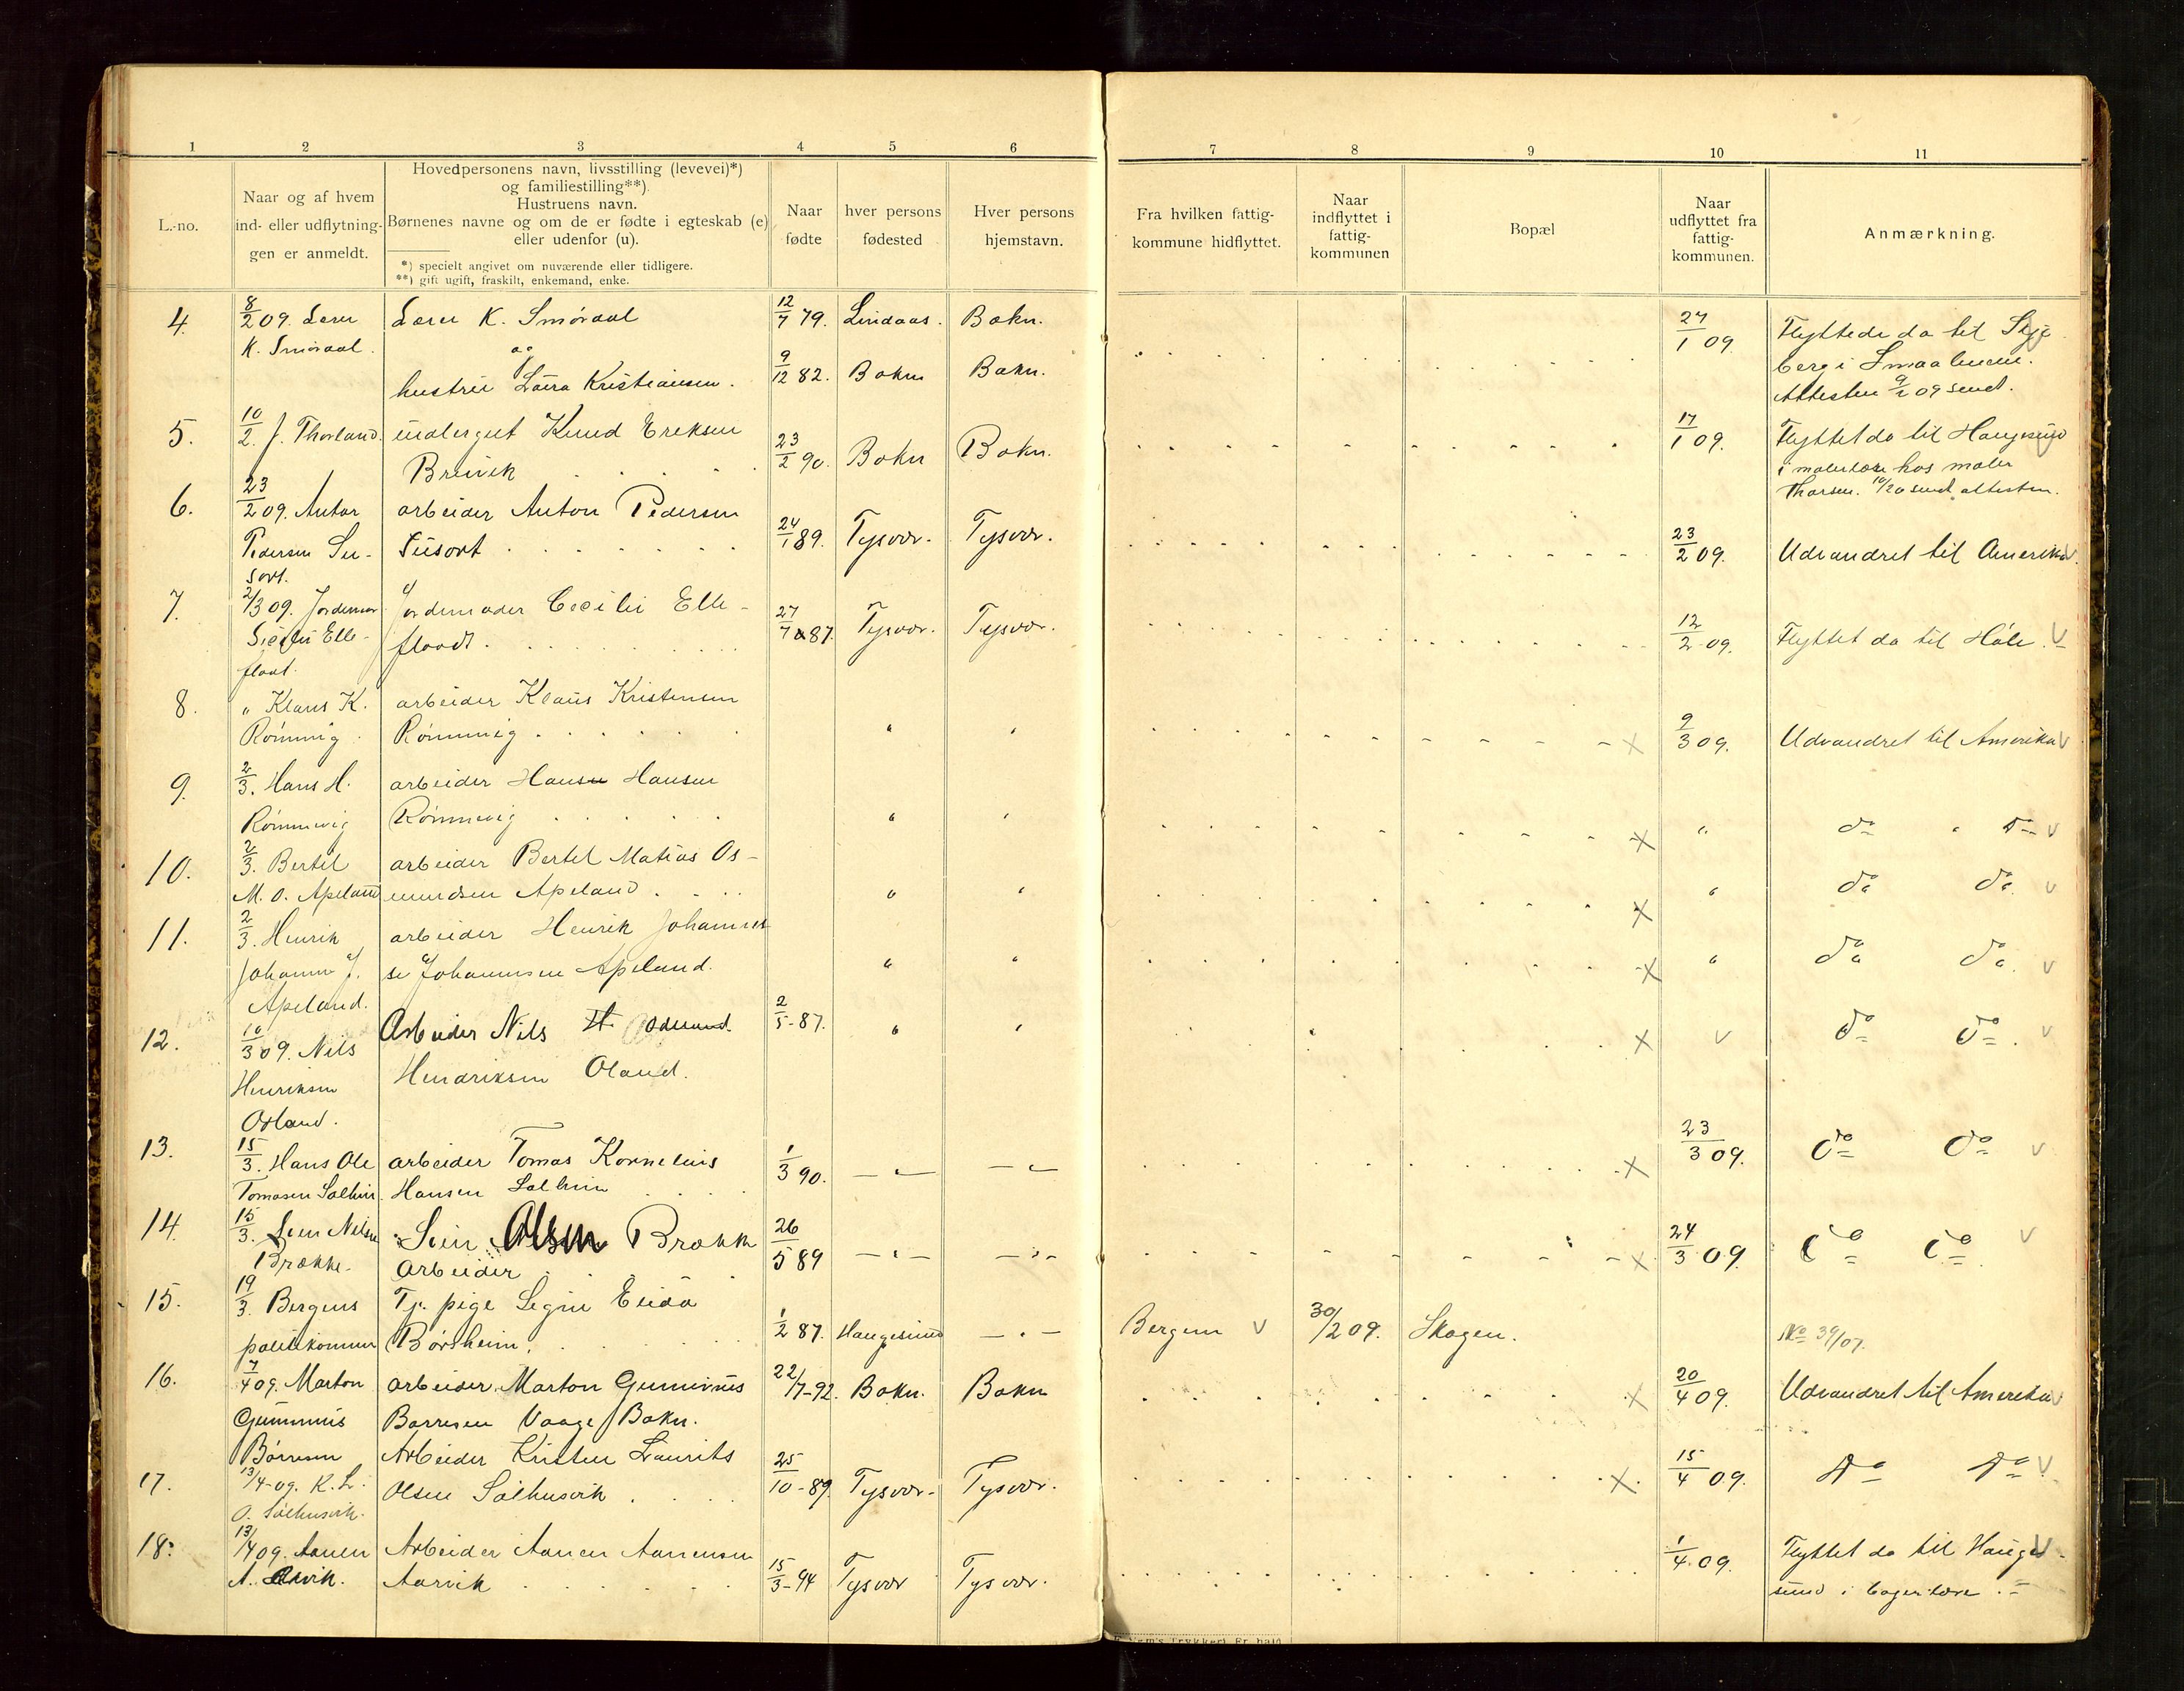 1 2 3 4 5 6 7 8 9 10 11
L.-no.
Naar og af hvem
ind- eller udflytnin-
gen er anmeldt.
Hovedpersonens navn, livsstilling (levevei)*)
og familiestilling**).
Hustruens navn.
Børnenes navne og om de er fødte i egteskab (e)
eller udenfor (u).
*) specielt angivet om nuværende eller tidligere.
**) gift ugift, fraskilt, enkemand, enke.
Naar
fødte
hver persons
fødested
Hver persons
hjemstavn.
Fra hvilken fattig-
kommune hidflyttet.
Naar
indflyttet i
fattig-
kommunen
Bopæl
Naar
udflyttet fra
fattig-
kommunen.
Anmærkning.
4. 8/2 09. Lærer Lærer K. Smørdal 12/7 79. Lindaas. Bokn. 27/1 09 Flyttede da til Skje
K. Smørdal. og berg i Smaalenene.
hustru Laura Kristiansen. 9/12 82. Bokn Bokn. Attesten 9/2 09 sendt.
5. 10/2. J. Thorland. malergut Knud Eriksen 17/1 09. Flyttet da til Haugesund
Breivik 23/2 90. Bokn Bokn. i malerlære hos maler
Thorsen. 10/2 sendt attesten.
6. 23/2 09. Anton arbeider Anton Pedersen
Pedersen Su- Susort 24/1 89. Tysvær. Tysvær. 23/2 09. Udvandret til Amerika. v
sort.
7. 2/3 09. Jordemor Jordemoder Cecilie Elle- 27/7 87. Tysvær. Tysvær. 12/2 09. Flyttet da til Høle. v
Secilie Elle- flaadt.
flaat.
8. " Klaus K. arbeider Klaus Kristensen
Rømmig Rømmig " " x 9/3 09. Udvandret til Amerika v
9. 2/3. Hans H. arbeider Hansen Hansen
Rømmevig Rømmevig " " x " do " do v
10. 2/3. Bertel arbeider Bertel Matias Os-
M. O. Apeland mundsen Apeland. " " x " do do. v
11. 2/3. Henrik arbeider Henrik Johannes
Johannes J. se Johannesen Apeland. " " x " do do. v
Apeland.
12. 10/3 09. Nils Arbeider Nils H. 2/5-87. " " x v do do. v
Henriksen Hendriksen Øland.
13. 15/3. Hans Ole arbeider Tomas Kornelius 1/3 90. — " — — " — x 23/3 09. do do v
Tomasen Salhus. Hansen Salhus
14. 15/3. Sven Nilsen Svein Olsen Brække 26/5 89 — " — — " — x 24/3 09. do do v
Brække. Arbeider
15. 19/3. Bergens Tj. pige Segni Elida
politikammer Børsheim. 1/2 87. Haugesund — " — Bergen v 30/2 09. Skogen. No 39/07.
16. 7/4 09. Marton arbeider Marton Gumnius 22/7-92. Bokn. Bokn x 20/4 09. Udvandret til Amerika v
Gummius Børresen Vaage Bokn.
Børresen Arbeider Kristen Laurits
17. 13/4-09. K. L. Olsen Salhusvik 25/10-89. Tysvær. Tysvær. x. 15/4 09. do do v
O. Salhusvik.
18. 13/4 09. Aanen Arbeider Aanen Aanensen 1/4 09. Flyttet da til Hauge- v
A. Arvik. Aarvik 15/3-94 Tysvær Tysvær. sund i bagerlære.